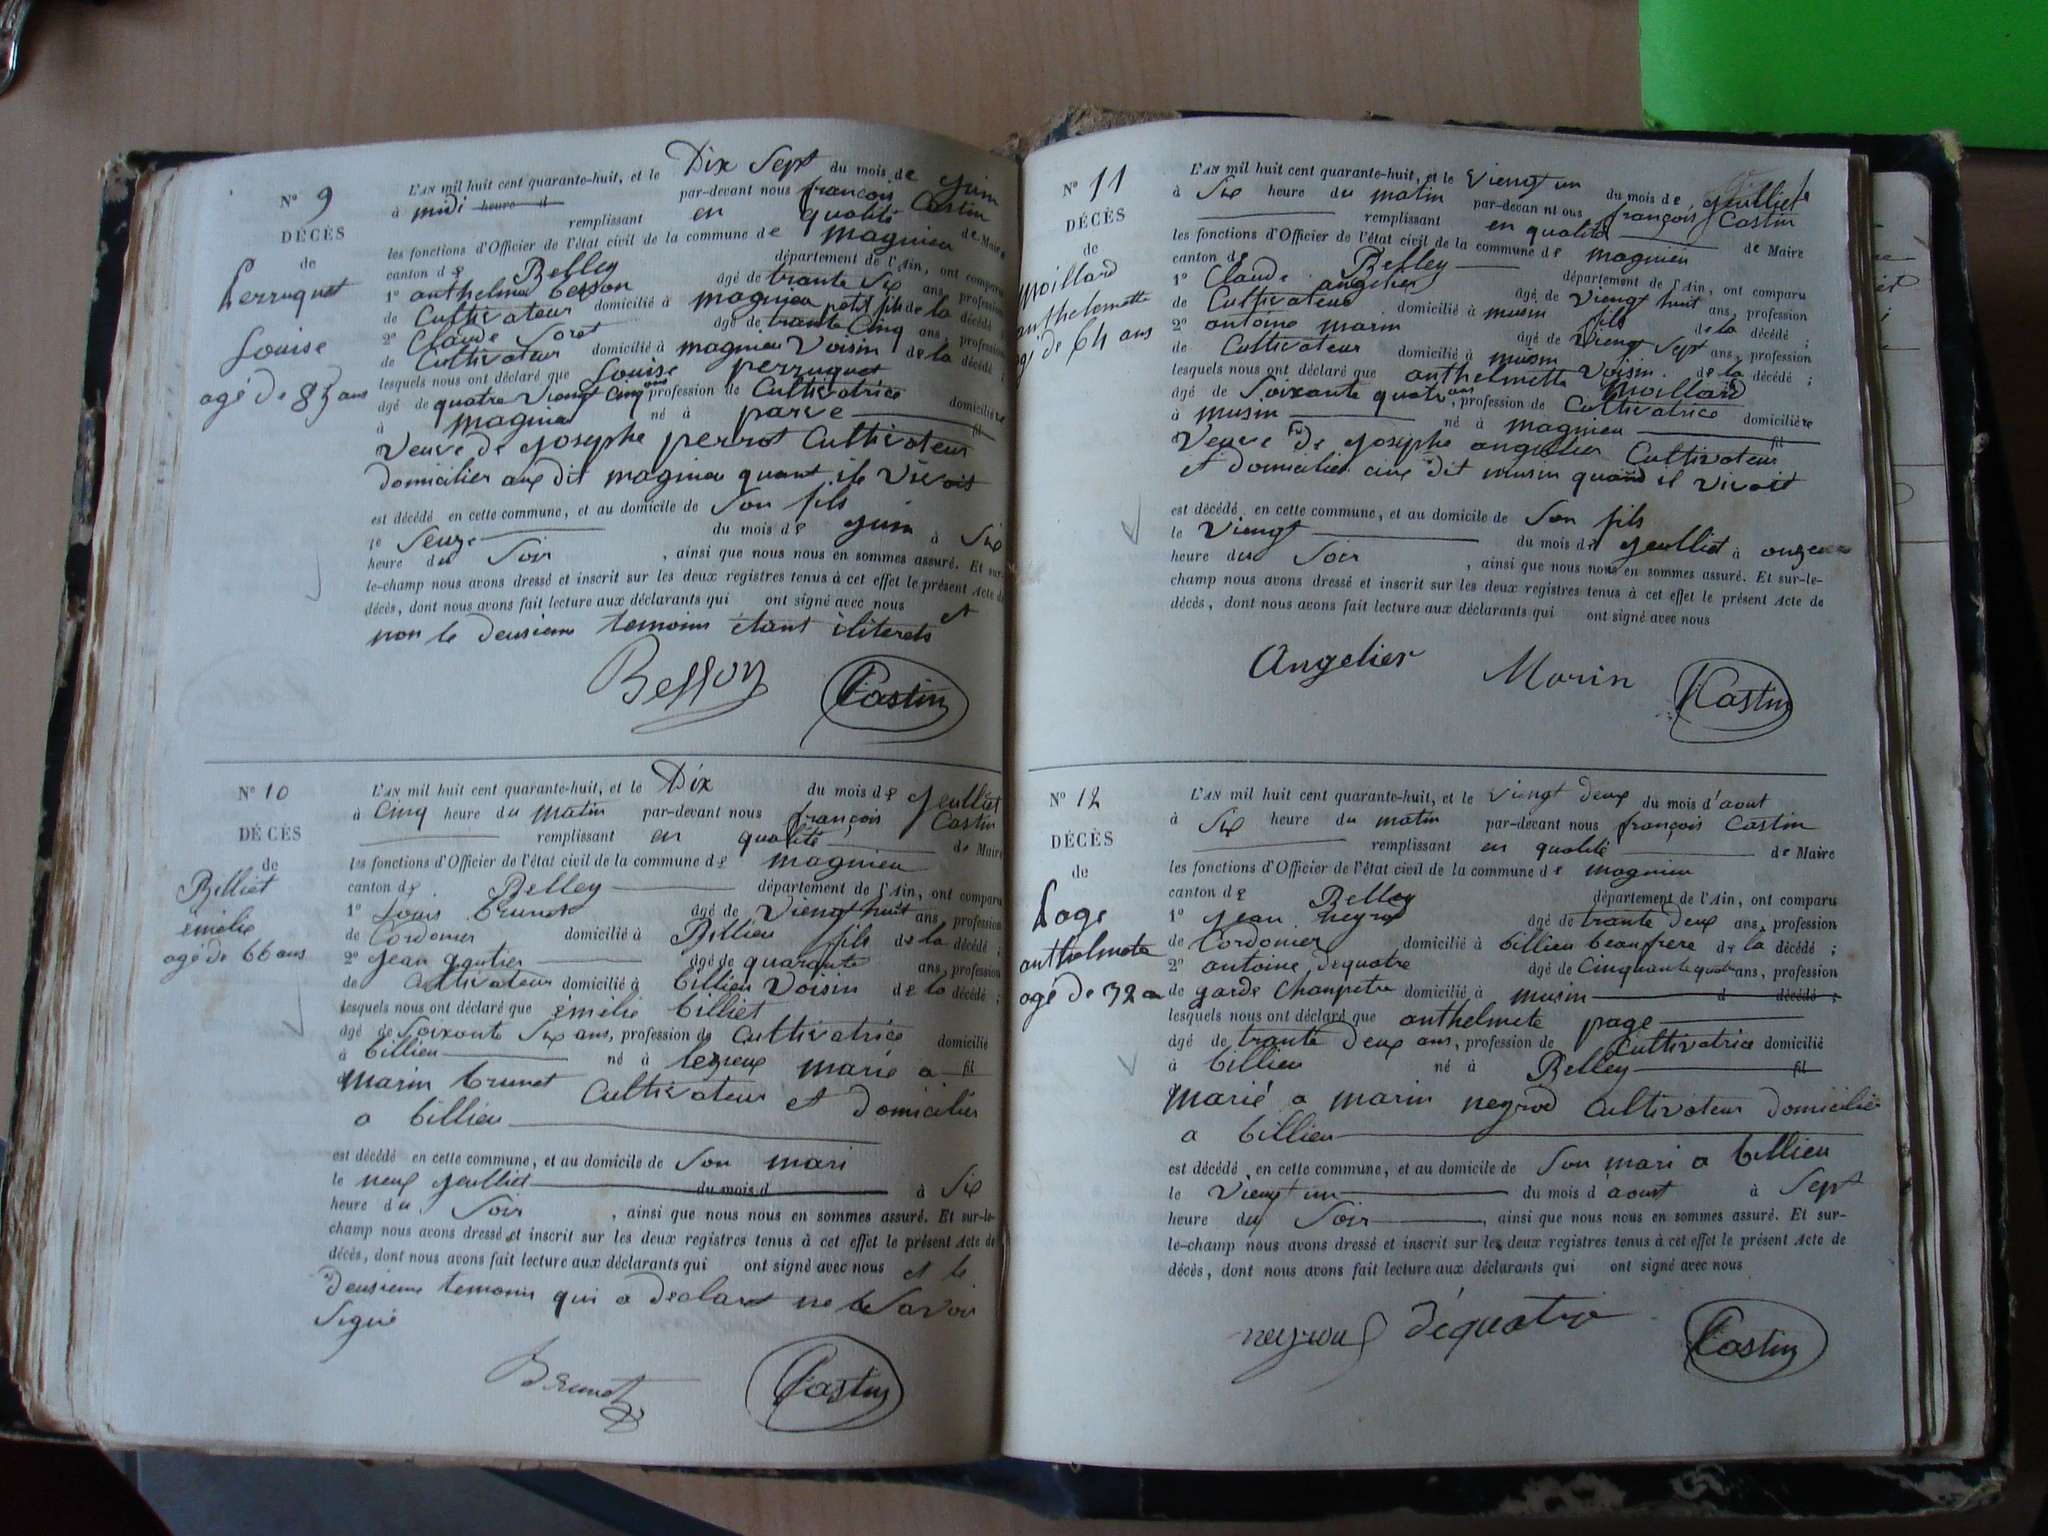 N° 9
DÉCÈS
de
Perruquet
Louise
agé de 85 ans
L'AN mil huit cent quarante-huit, et le Dix Sept du mois de Juin
à midi heure d par-devant nous françois Castin
remplissant en qualité de Maire
les fonctions d'Officier de l'état civil de la commune de magnieu
canton de Belley département de l'Ain, ont comparu
1° anthelme besson âgé de trante Six ans, profession
de Cultivateur domicilié à magnieu petit fils de la décédé ;
2° Claude Soret âgé de trante Cinq ans, profession
de Cultivateur domicilié à magnieu Voisin de la décédé ;
lesquels nous ont déclaré que Louise perruquet
âgé de quatre Viengt Cinq ans profession de Cultivatrice domicilière
à magnieu né à parve fil
Veuve de Josephe perrot Cultivateur
domicilier aux dit magnieu quant ils Vivoit
est décédé en cette commune, et au domicile de Son fils
le Seuze du mois de Juin à Six
heure du Soir , ainsi que nous nous en sommes assuré. Et sur-
le-champ nous avons dressé et inscrit sur les deux registres tenus à cet effet le présent Acte de
décès, dont nous avons fait lecture aux déclarants qui ont signé avec nous et
non le deusieme temoins étant iliterets
Besson Castin
N° 10
DÉCÈS
de
Billiet
émélie
agé de 66 ans
L'AN mil huit cent quarante-huit, et le Dix du mois de Jeulliet
à Cinq heure du matin par-devant nous françois Castin
remplissant en qualité de Maire
les fonctions d'Officier de l'état civil de la commune de magnieu
canton de Belley département de l'Ain, ont comparu
1° Louis brunet âgé de Viengt huit ans, profession
de Cordonier domicilié à Billieu fils de la décédé ;
2° Jean gautier âgé de quarante ans, profession
de Cultivateur domicilié à billieu Voisin de la décédé ;
lesquels nous ont déclaré que émélie billiet
âgé de Soixante Six ans, profession de Cultivatrice domicilié
à billieu né à lezieux marié a fil
Marin brunet Cultivateur et domicilier
a billieu
est décédé en cette commune, et au domicile de Son mari
le neuf Jeulliet du mois d à Six
heure du Soir , ainsi que nous nous en sommes assuré. Et sur-le-
champ nous avons dressé et inscrit sur les deux registres tenus à cet effet le présent Acte de
décès, dont nous avons fait lecture aux déclarants qui ont signé avec nous et le
deusieme temoin qui a declaret ne le Savoir
Signé
Brunet Castin
N° 11
DÉCÈS
de
Moillard
anthelmette
agé de 64 ans
L'AN mil huit cent quarante-huit, et le Viengt un du mois de Jeulliet
à Six heure du matin par-devant nous françois Castin
remplissant en qualité de Maire
les fonctions d'Officier de l'état civil de la commune de magnieu
canton de Belley département de l'Ain, ont comparu
1° Claude angelier âgé de Viengt huit ans, profession
de Cultivateur domicilié à musin fils de la décédé ;
2° antoine marin âgé de Viengt Sept ans, profession
de Cultivateur domicilié à musin Voisin de la décédé ;
lesquels nous ont déclaré que anthelmette Moillard
âgé de Soixante quatre ans, profession de Cultivatrice domicilière
à musin né à magnieu fil
Veuve de Josephe angelier Cultivateur
et domicilier aux dit musin quand il vivoit
est décédé en cette commune, et au domicile de Son fils
le Viengt du mois de Jeulliet à onze
heure du Soir , ainsi que nous nous en sommes assuré. Et sur-le-
champ nous avons dressé et inscrit sur les deux registres tenus à cet effet le présent Acte de
décès, dont nous avons fait lecture aux déclarants qui ont signé avec nous
Angelier Marin Castin
N° 12
DÉCÈS
de
Page
anthelmete
agé de 32 a
L'AN mil huit cent quarante-huit, et le viengt deux du mois d'aout
à Six heure du matin par-devant nous françois Castin
remplissant en qualité de Maire
les fonctions d'Officier de l'état civil de la commune de magnieu
canton de Belley département de l'Ain, ont comparu
1° Jean neyrod âgé de trante deux ans, profession
de Cordonier domicilié à billieu beaufrere de la décédé ;
2° antoine dequatre âgé de Cinquante quatre ans, profession
de garde Champetre domicilié à musin d décédé ;
lesquels nous ont déclaré que anthelmete page
âgé de trante Deux ans, profession de Cultivatrice domicilié
à billieu né à Belley fil
Marié a marin neyrod Cultivateur domicilié
a billieu
est décédé en cette commune, et au domicile de Son mari a billieu
le Viengt un du mois d'aout à Sept
heure du Soir , ainsi que nous nous en sommes assuré. Et sur-
le-champ nous avons dressé et inscrit sur les deux registres tenus à cet effet le présent Acte de
décès, dont nous avons fait lecture aux déclarants qui ont signé avec nous
neyroud déquatre Castin